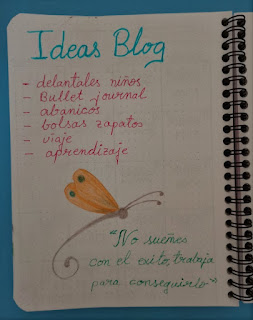 Ideas Blog
- delantales niños
- Bullet journal
- abanicos
- bolsas zapatos
- viaje
- aprendizaje
"No sueñes
con el exito, trabaja
para conseguirlo"